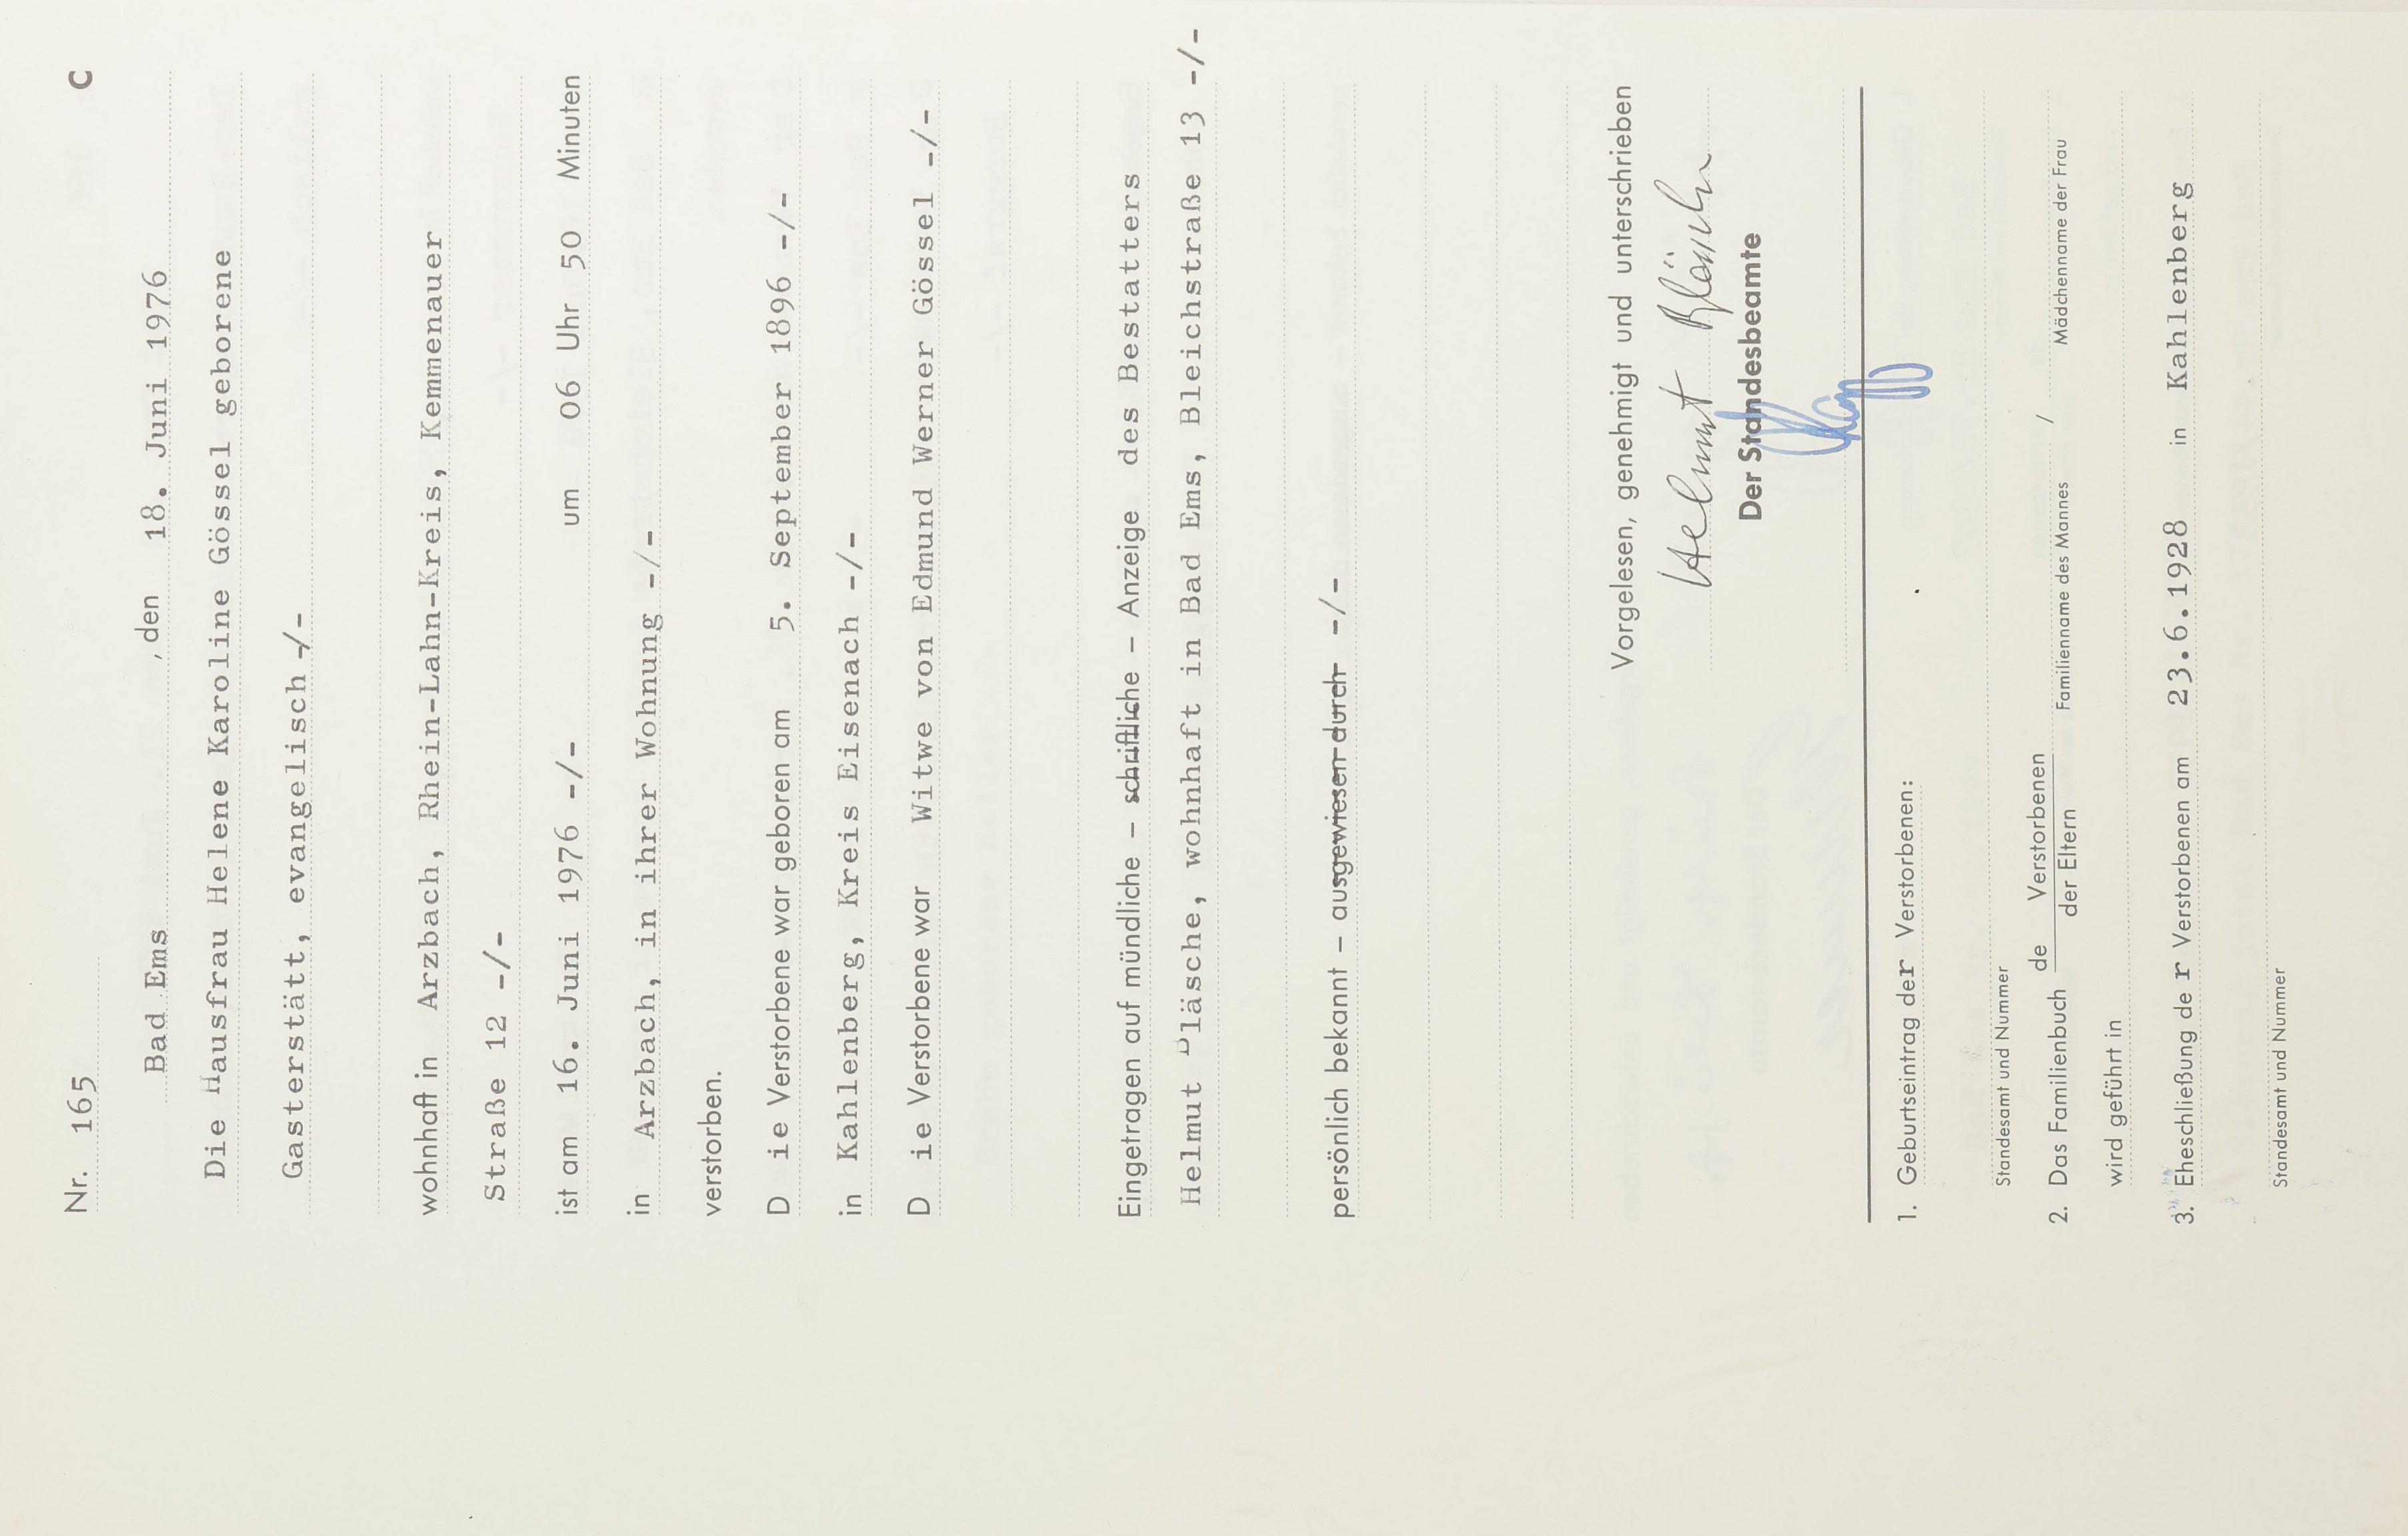 Nr. 165 C
Bad Ems, den 18. Juni 1976
Die Hausfrau Helene Karoline Gössel geborene
Gasterstätt, evangelisch -/-
wohnhaft in Arzbach, Rhein-Lahn-Kreis, Kemmenauer
Straße 12 -/-
ist am 16. Juni 1976 -/- um 06 Uhr 50 Minuten
in Arzbach, in ihrer Wohnung -/-
verstorben.
D ie Verstorbene war geboren am 5. September 1896 -/-
in Kahlenberg, Kreis Eisenach -/-
D ie Verstorbene war Witwe von Edmund Werner Gössel -/-
Eingetragen auf mündliche – schriftliche – Anzeige des Bestatters
Helmut Pläsche, wohnhaft in Bad Ems, Bleichstraße 13 -/-
persönlich bekannt – ausgewiesen durch -/-
Vorgelesen, genehmigt und unterschrieben
Helmut Pläsche
Der Standesbeamte
1. Geburtseintrag der Verstorbenen:
Standesamt und Nummer
2. Das Familienbuch de Verstorbenen / der Eltern Familienname des Mannes / Mädchenname der Frau
wird geführt in
3. Eheschließung de r Verstorbenen am 23.6.1928 in Kahlenberg
Standesamt und Nummer